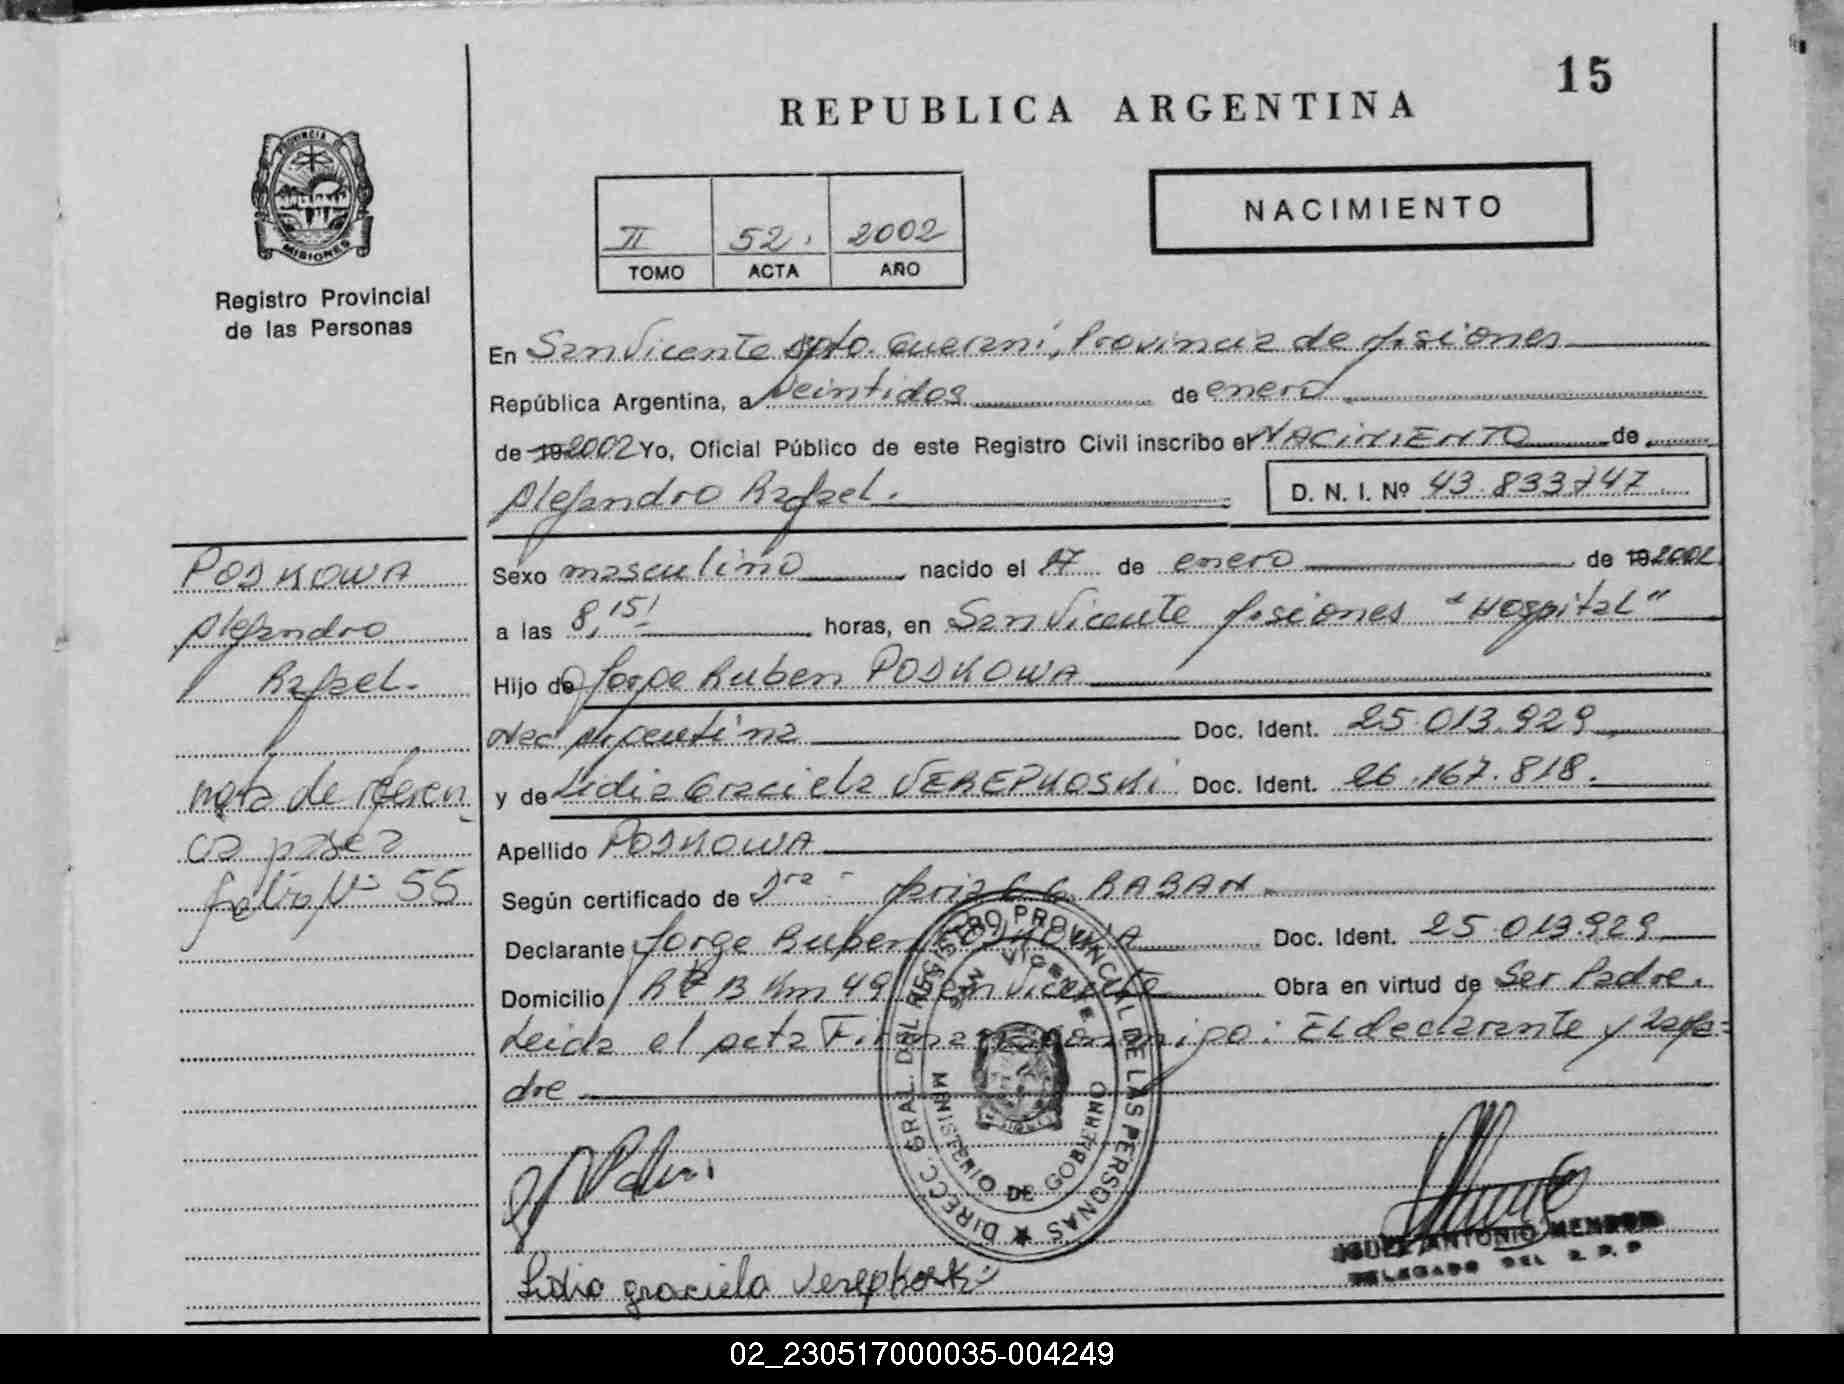 15
REPUBLICA ARGENTINA
PROVINCIA DE
MISIONES
Registro Provincial
de las Personas
II 52. 2002
TOMO ACTA AÑO
NACIMIENTO
En San Vicente Dpto. Guarani, Provincia de Misiones
República Argentina, a veintidos de enero
de 19 2002 Yo, Oficial Público de este Registro Civil inscribo el NACIMIENTO de
Alejandro Rafael. D. N. I. Nº 43.833.747
POSKOWA
Alejandro
Rafael.
nota de referen
cia pasa a
folio Nº 55
Sexo masculino nacido el 17 de enero de 19 2002
a las 8,15! horas, en San Vicente Misiones "Hospital"
Hijo de Jorge Ruben POSKOWA
Nac Argentina Doc. Ident. 25.013.929
y de Lidia Graciela VEREPKOSKI Doc. Ident. 26.167.818.
Apellido POSKOWA
Según certificado de Dra - Maria C. C. RABAN
Declarante Jorge Ruben POSKOWA Doc. Ident. 25.013.929
Domicilio R B Km 49 San Vicente Obra en virtud de Ser Padre.
Leida el acta Firman conmigo: El declarante y la Ma=
dre
DIRECC. GRAL. DEL REGISTRO PROVINCIAL DE LAS PERSONAS
SAN VICENTE
MINISTERIO DE GOBIERNO
Lidia graciela Verepkoski
ANTONIO
DELEGADO DEL R. P. P
02_230517000035-004249